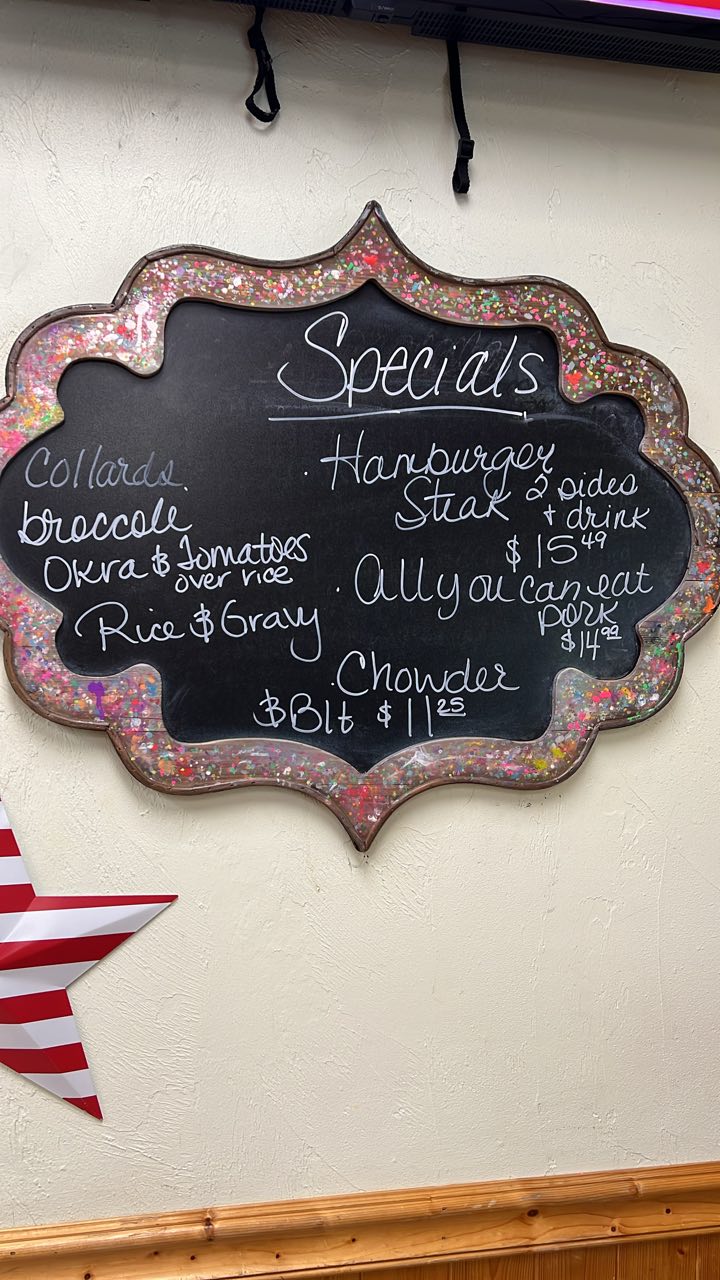 Specials
Collards
broccole
Okra & Tomatoes
over rice
Rice & Gravy
. Hamburger
Steak 2 sides
+ drink
$15.49
. All you can eat
pork
$14.99
. Chowder
& Blt $11.25